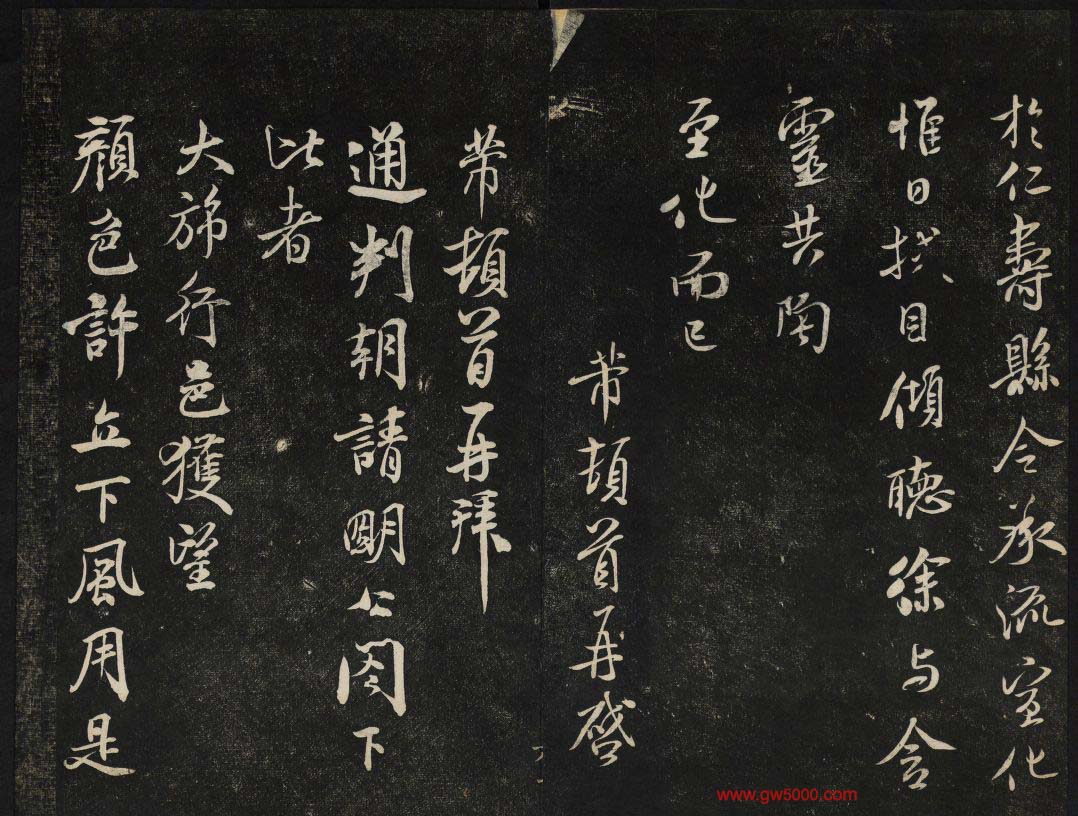 於仁壽縣令承流宣化
惟日拭目傾聽徐与含
靈共陶
至化而已
芾頓首再啓
芾頓首再拜
通判朝請明公閤下
比者
大旆行邑獲望
顏色許立下風用是
www.gw5000.com